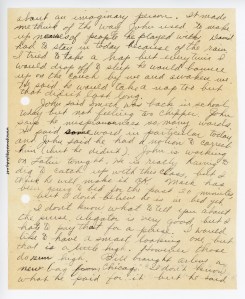 about an imaginary person. It made
me think of the way John used to make
up names of people he played with. Ronnie
had to stay in today because of the rain
I tried to take a nap but everytime I
would drop off to sleep he would bounce
up on the couch by me and awaken me.
He said he would take a nap too but
that didn't last long.
John said Smith was back in school
today but not feeling too chipper. John
says he mispronounces so many words.
I said some word in particular today
and John said he had a notion to correct
him (but he didn't). John is working
on Latin tonight. He is really having to
dig to catch up with the class, but I
think he will make it OK. Mick has
been going to bed for the past 20 minutes
but I don't believe he is in bed yet.
I don't know what to tell you about
the purse. Alligator is very good but I'd
hate to pay that for a purse. I would
like to have a small brown one but
that is awfully high. However, those
do run high. Bill bought Arlene a
new bag from Chicago. I don't know
what he paid for it but he said